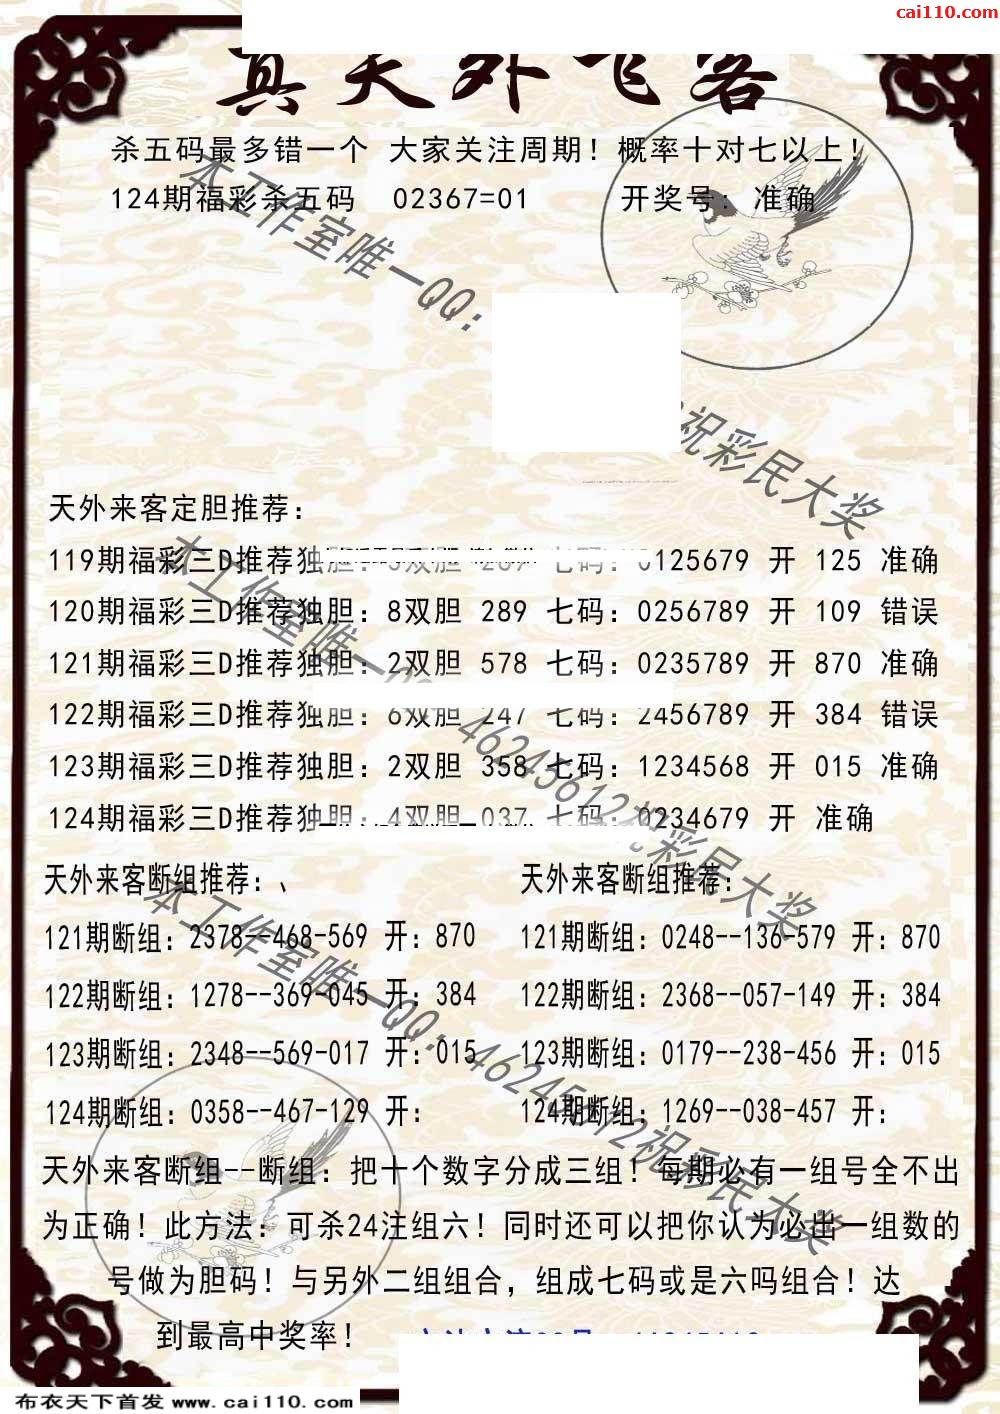 cai110.com
真天外飞客
杀五码最多错一个 大家关注周期！概率十对七以上！
124期福彩杀五码 02367=01 开奖号： 准确
本工作室唯一QQ：
祝彩民大奖
天外来客定胆推荐：
119期福彩三D推荐独胆： 双胆 289 七码：0125679 开 125 准确
120期福彩三D推荐独胆：8双胆 289 七码：0256789 开 109 错误
121期福彩三D推荐独胆：2双胆 578 七码：0235789 开 870 准确
122期福彩三D推荐独胆：6双胆 247 七码：2456789 开 384 错误
123期福彩三D推荐独胆：2双胆 358 七码：1234568 开 015 准确
124期福彩三D推荐独胆：4双胆 037 七码：0234679 开 准确
本工作室唯一QQ：46245612祝彩民大奖
天外来客断组推荐：、 天外来客断组推荐：
121期断组：2378--468-569 开：870 121期断组：0248--136-579 开：870
122期断组：1278--369-045 开：384 122期断组：2368--057-149 开：384
123期断组：2348--569-017 开：015 123期断组：0179--238-456 开：015
124期断组：0358--467-129 开： 124期断组：1269--038-457 开：
本工作室唯一QQ：46245612祝彩民大奖
天外来客断组--断组：把十个数字分成三组！每期必有一组号全不出
为正确！此方法：可杀24注组六！同时还可以把你认为必出一组数的
号做为胆码！与另外二组组合，组成七码或是六吗组合！达
到最高中奖率！
布衣天下首发 www.cai110.com